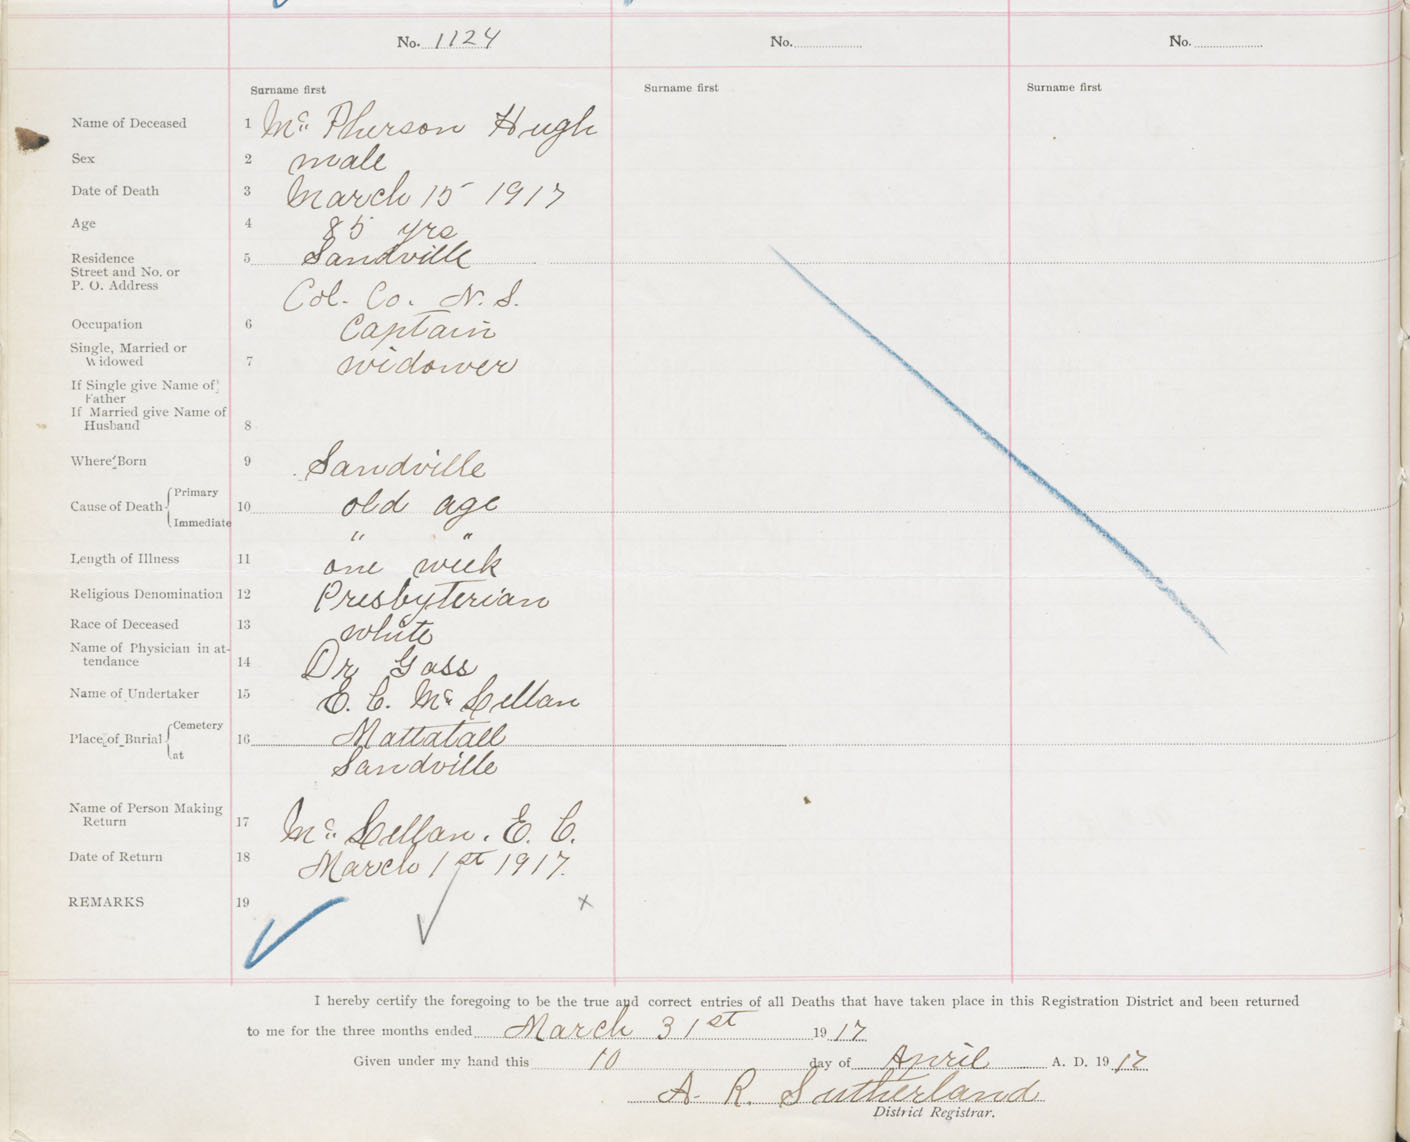 No. 1124 No. No.
Surname first Surname first Surname first
Name of Deceased 1 Mc Pherson Hugh
Sex 2 male
Date of Death 3 March 15 1917
Age 4 85 yrs
Residence 5 Sandville
Street and No. or
P. O. Address
Col. Co. N. S.
Occupation 6 Captain
Single, Married or
Widowed 7 widower
If Single give Name of
Father
If Married give Name of
Husband 8
Where Born 9 Sandville
Cause of Death { Primary
10 old age
Immediate
" "
Length of Illness 11 one week
Religious Denomination 12 Presbyterian
Race of Deceased 13 white
Name of Physician in at-
tendance 14 Dr Gass
Name of Undertaker 15 E. C. Mc Lellan
Place of Burial { Cemetery
16 Mattatall
at Sandville
Name of Person Making
Return 17 Mc Lellan. E. C.
Date of Return 18 March 1st 1917.
REMARKS 19
x
I hereby certify the foregoing to be the true and correct entries of all Deaths that have taken place in this Registration District and been returned
to me for the three months ended March 31st 1917
Given under my hand this 10 day of April A. D. 1917
A. R. Sutherland
District Registrar.